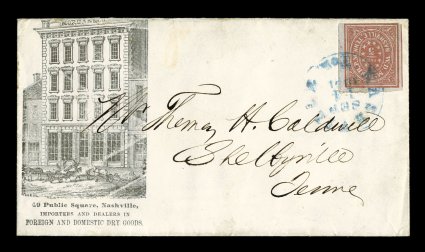 49 Public Square, Nashville,
IMPORTERS AND DEALERS IN
FOREIGN AND DOMESTIC DRY GOODS.
Mr Thomas H. Caldwell
Shelbyville
Tenne